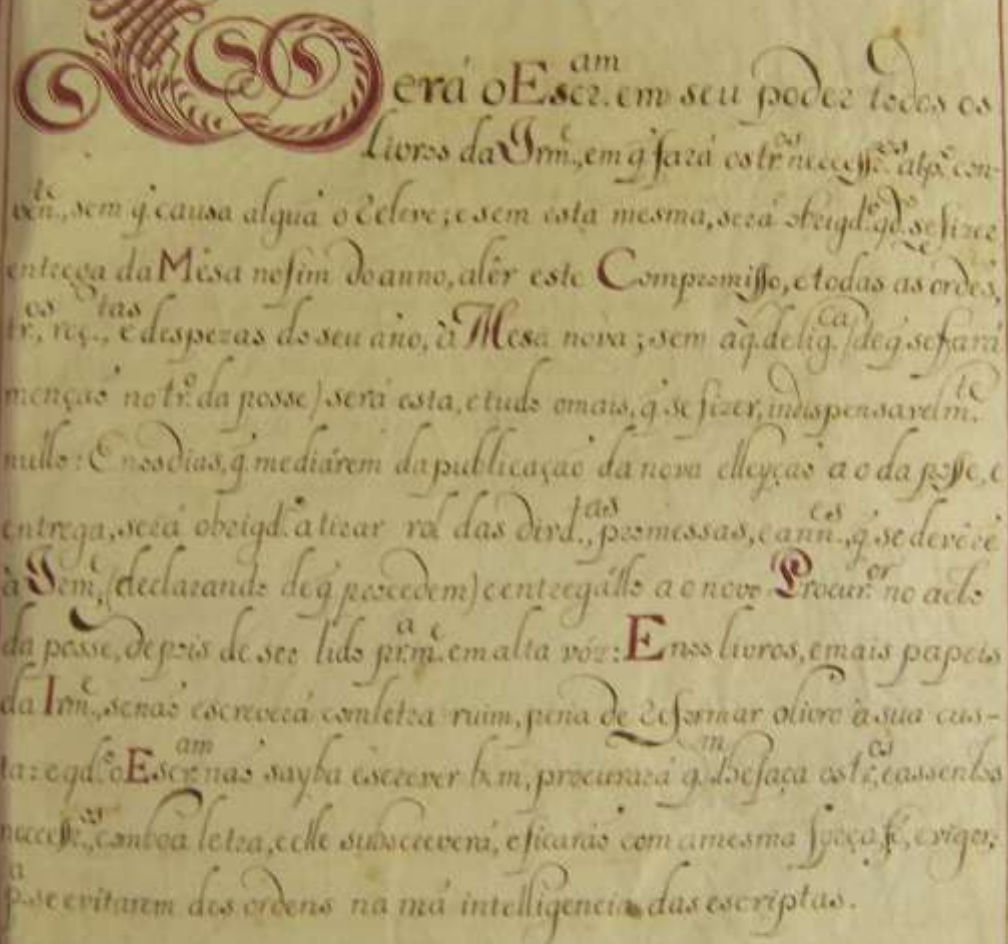 Terá o Escr.am em seu poder todos os
livros da Irm.e, em q̃ fará os tr.os necess.os, al p.e con-
ven.te, sem q̃ causa algũa o releve; e sem esta mesma, será obrigd.o qd.o se fizer
entrega da Mesa no fim do anno, a lêr este Compromisso, e todas as ordẽs,
tr.os, reç.tas, e despezas do seu año, â Mesa nova; sem aq̃. delig.ca (de q̃ se fará
menção no tr.o da posse) será esta, e tudo o mais, q̃ se fizer, indispensavelm.te
nullo: E nos dias, q̃ mediárem da publicação da nova elleyção ao da posse, e
entrega, será obrigd.o a tirar rol das divd.as, promessas, e ann.es, q̃ se devẽrẽ
à Irm.e (declarando de q̃ procedem) e entregállo ao novo Procur.or no acto
da posse, depois de ser lido pr.a m.e em alta vóz: E nos livros, e mais papeis
da Irm.e, se não escreverá com letra ruim, pena de reformar o livro à sua cus-
ta: e qd.o o Escr.am não sayba escrever bem, procurará q.m lhe faça os tr.os, e assentos
necess.os, com boa letra, e elle subscreverá, e ficarão com a mesma força, fé, e vigor,
p.a se evitarem desordens na má intelligencia das escriptas.